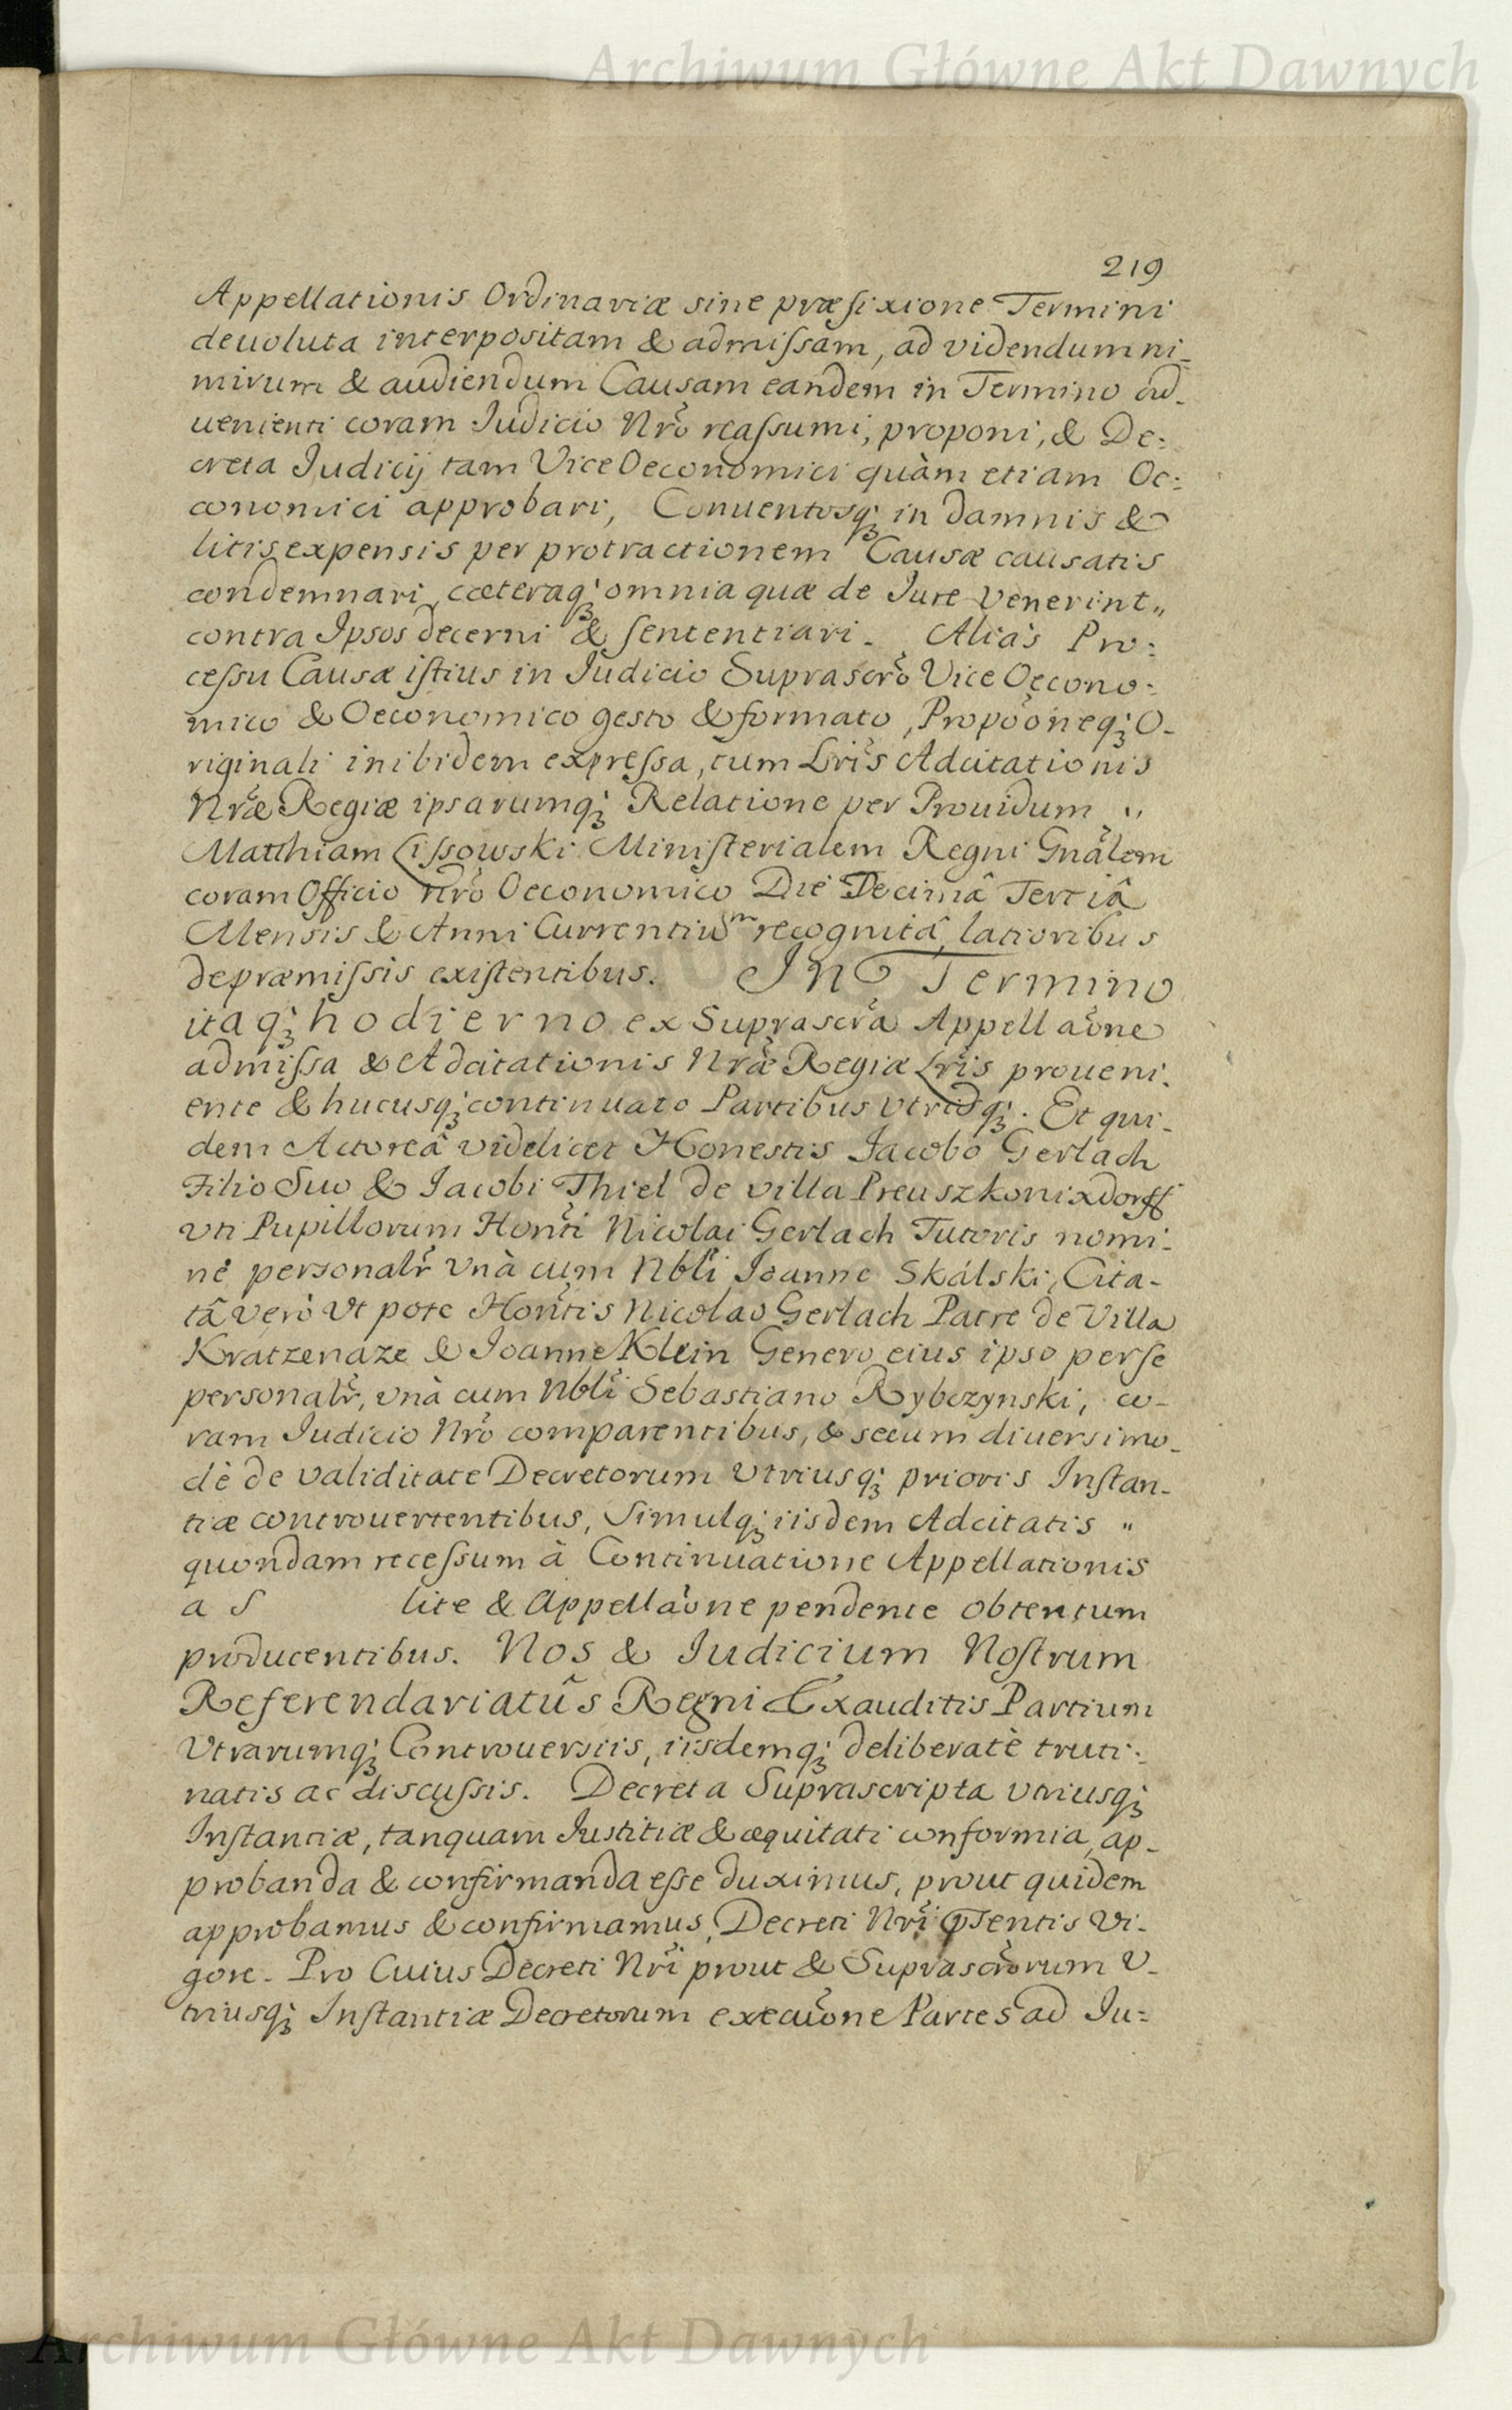 Archiwum Główne Akt Dawnych
219
Appellationis Ordinariæ sine præfixione Termini
deuoluta interpositam & admissam, ad videndum ni-
mirum & audiendum Causam eandem in Termino ad-
uenienti coram Iudicio Nro reassumi, proponi, & De:
creta Judicij tam Vice Oeconomici quàm etiam Oe:
conomici approbari, Conuentosq; in damnis &
litis expensis per protractionem Causæ causatis
condemnari, cæteraq; omnia quæ de Jure venerint"
contra Ipsos decerni & sententiari. Aliàs Pro:
cessu Causæ istius in Iudicio Suprascro Vice Oecono:
mico & Oeconomico gesto & formato, Propooneq; O-
riginali inibidem expressa, tum Lris Adcitationis
Nræ Regiæ ipsarumq; Relatione per Prouidum "
Matthiam Lissowski Ministerialem Regni Gnalem
coram Officio nro Oeconomico Die Decimâ Tertiâ
Mensis & Anni Currentium recognitâ, latioribus
de præmissis existentibus. In Termino
itaq; hodierno ex Suprascra Appellaone
admissa & Adcitationis Nræ Regiæ Lris proueni-
ente & hucusq; continuato Partibus vtrisq;. Et qui-
dem Actoreâ videlicet Honestis Jacobo Gerlach
Filio Suo & Iacobi Thiel de villa Preuszkonixdorff
vti Pupillorum Honti Nicolai Gerlach Tutoris nomi-
ne personalr vnà cum Nbli Ioanne Skálski, Cita-
tâ verò vt pote Hontis Nicolao Gerlach Patre de Villa
Kratzenaze & Joanne Klein Genero eius ipso per se
personalr, vnà cum Nbli Sebastiano Rybczynski, co-
ram Iudicio Nro comparentibus, & secum diuersimo-
dè de validitate Decretorum vtriusq; prioris Instan-
tiæ controuertentibus, Simulq; iisdem Adcitatis "
quondam recessum à Continuatione Appellationis
a S lite & Appellaone pendente obtentum
producentibus. Nos & Iudicium Nostrum
Referendariatûs Regni Exauditis Partium
Vtrarumq; Controuersiis, iisdemq; deliberatè truti:
natis ac discussis. Decreta Suprascripta vtriusq;
Instantiæ, tanquam Iustitiæ & æquitati conformia, ap-
probanda & confirmanda esse duximus, prout quidem
approbamus & confirmamus, Decreti Nri pntis vi-
gore. Pro Cuius Decreti Nri prout & Suprascrorum V-
triusq; Instantiæ Decretorum execuone Partes ad Iu:
Archiwum Główne Akt Dawnych